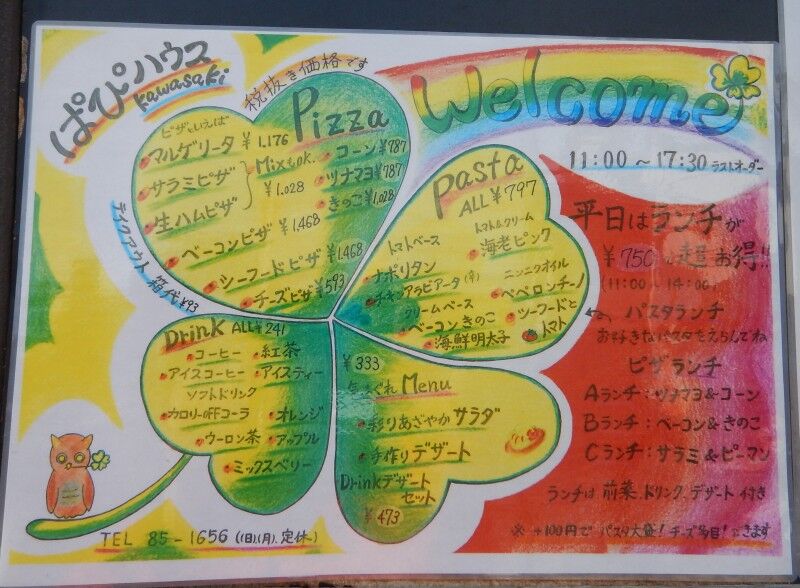 ぱぴハウス
kawasaki
税抜き価格です
Pizza
ピザといえば
マルゲリータ ¥1.176
サラミピザ
生ハムピザ
Mixもok.
¥1.028
コーン ¥787
ツナマヨ ¥787
きのこ ¥1.028
ベーコンピザ ¥1.468
シーフードピザ ¥1.468
チーズピザ ¥593
テイクアウト 箱代 ¥93
Welcome
11:00 ~ 17:30 ラストオーダー
Pasta
ALL ¥797
トマトベース
ナポリタン
チキンアラビアータ(辛)
トマト&クリーム
海老ピンク
クリームベース
ベーコンきのこ
海鮮明太子
ニンニクオイル
ペペロンチーノ
ツーフードと
トマト
平日はランチが
¥750 の超お得!!
(11:00 ~ 14:00)
パスタランチ
お好きなパスタをえらんでね
ピザランチ
Aランチ:ツナマヨ&コーン
Bランチ:ベーコン&きのこ
Cランチ:サラミ&ピーマン
ランチは 前菜、ドリンク、デザート 付き
※ +100円で パスタ大盛! チーズ多目! できます
Drink ALL ¥241
コーヒー 紅茶
アイスコーヒー アイスティー
ソフトドリンク
カロリーoffコーラ オレンジ
ウーロン茶 アップル
ミックスベリー
¥333
気まぐれ Menu
彩りあざやか サラダ
手作り デザート
Drinkデザート
セット
¥473
TEL 85-1656 (日),(月),定休)